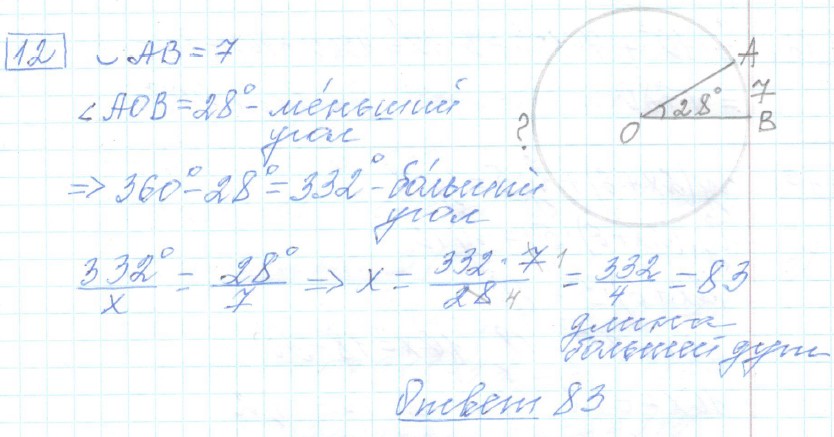 12 ◡ AB = 7
∠ AOB = 28° - ме́ньший
угол
=> 360° - 28° = 332° - бо́льший
угол
332°/x = 28°/7 => x = 332 · 7 1/28 4 = 332/4 = 83
длина
большей дуги
Ответ 83
A
7
28°
O
B
?